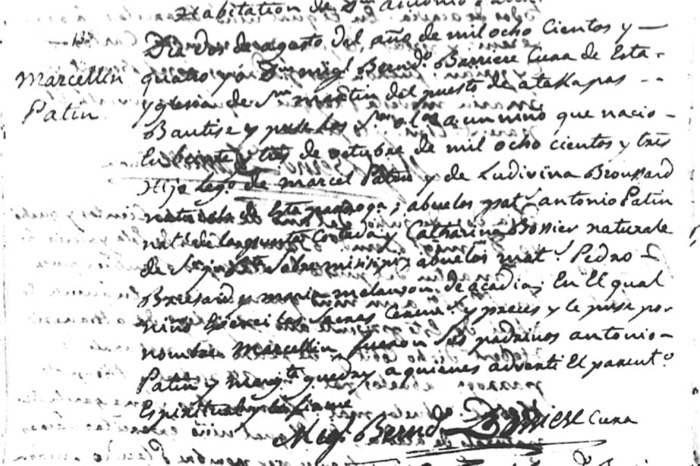 Habitation de Dn Antonio
Marcellin
Patin
Dia dos de agosto del año de mil ocho cientos y
quatro yo Dn Migl Bernd.º Barriere Cura de Esta
yglesia de Sn Martin del puesto de atakapas
Bautise y puse los Stos olos a un niño que nacio
En beinte y tres de octubre de mil ocho cientos y tres
Hijo legº de Marcel Patin y de Ludivina Broussard
naturales de Esta parroqa, abuelos pat. antonio Patin
nat. de la punta Cortada y Catharina Bossier naturale
de abuelos mat. Pedro
Broussard y maria melanson de acadia; En el qual
niño Exerci las sacras cerem.s y preces y le puse por
nombre Marcellin fueron sus padrinos antonio
Patin y Margta a quienes adverti El parentº
Espiritual y lo firme
Migl Bernd.º Barriere Cura